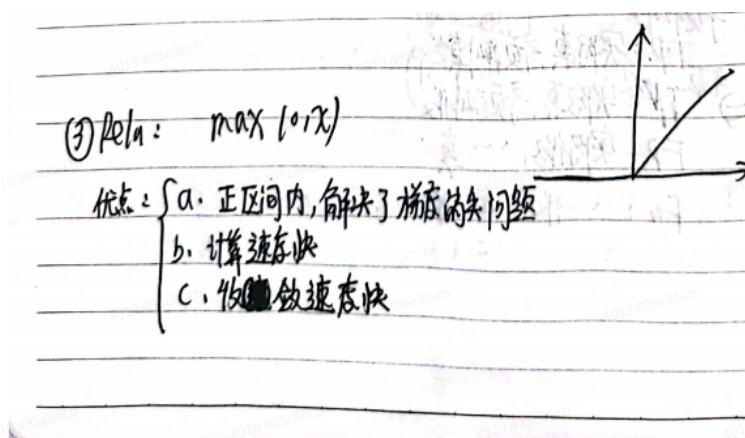 ③ Relu: max(0,x)
优点: a. 正区间内,解决了梯度消失问题
b. 计算速度快
c. 收敛速度快